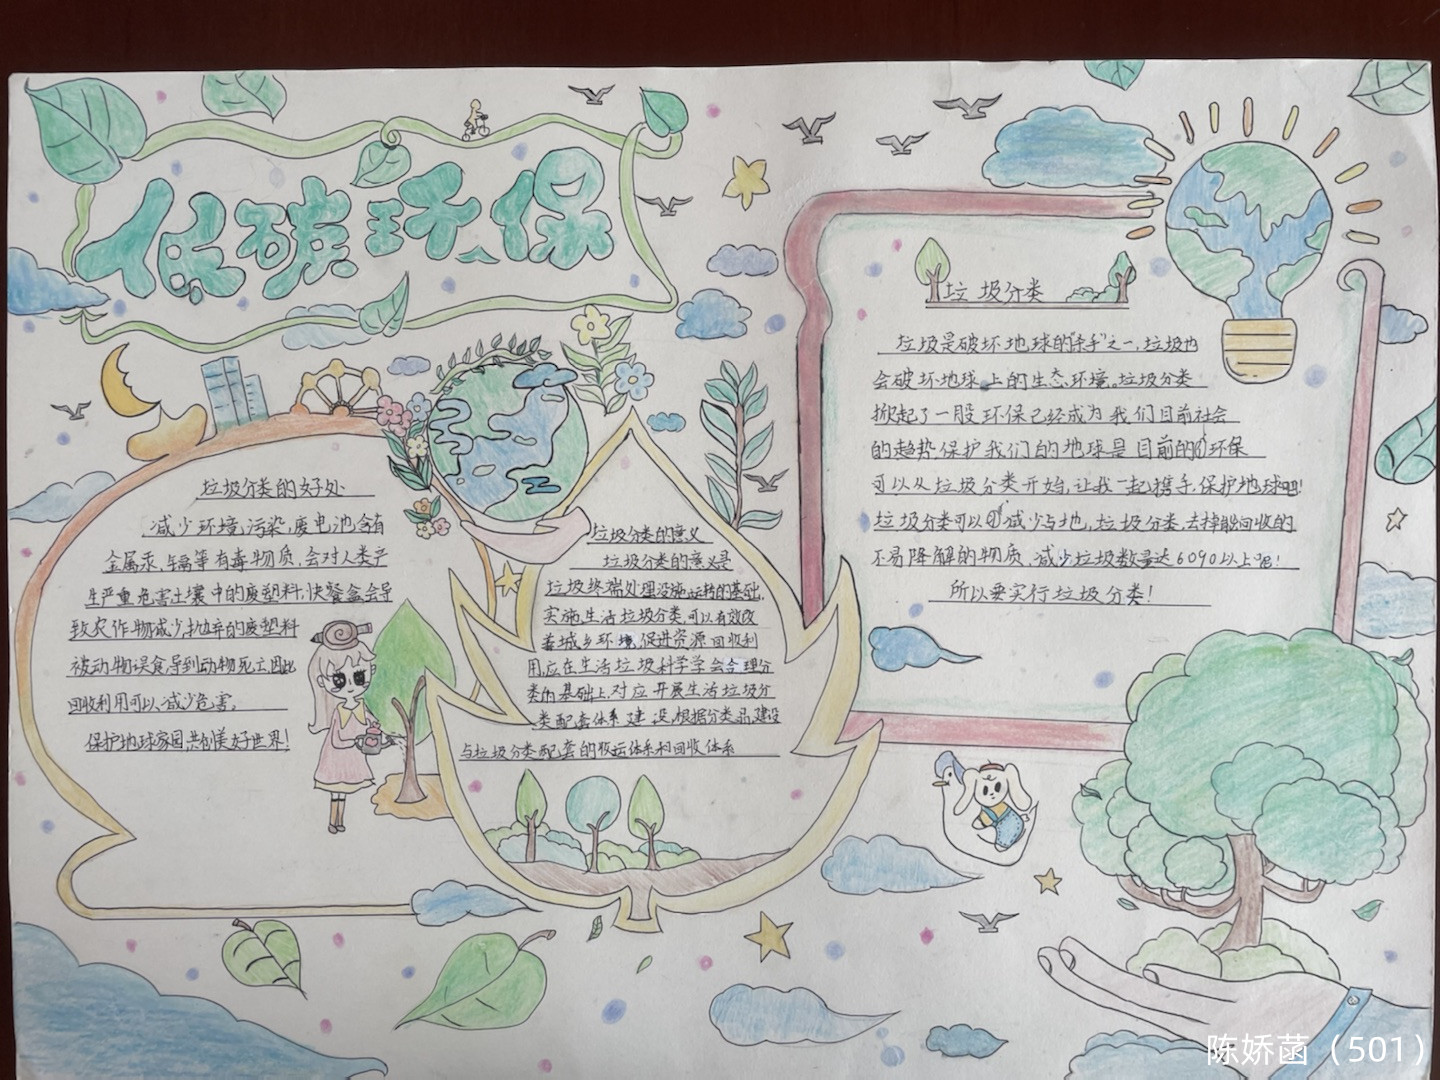 低碳环保
垃圾分类的好处
减少环境污染,废电池含有
金属汞、镉等有毒物质,会对人类产
生严重危害土壤中的废塑料,快餐盒会导
致农作物减少抛弃的废塑料
被动物误食导到动物死亡,因此
回收利用可以减少危害。
保护地球家园共创美好世界!
垃圾分类的意义
垃圾分类的意义是
垃圾终端处理设施运转的基础,
实施生活垃圾分类,可以有效改
善城乡环境,促进资源回收利
用,应在生活垃圾科学学会合理分
类的基础上,对应开展生活垃圾分
类配套体系建设,根据分类品建设
与垃圾分类配套的收运体系和回收体系
垃圾分类
垃圾是破坏地球的"杀手"之一,垃圾也
会破坏地球上的生态环境。垃圾分类
掀起了一股环保已经成为我们目前社会
的趋势,保护我们的地球是目前的环保
可以从垃圾分类开始,让我一起携手,保护地球吧!
垃圾分类可以减少占地,垃圾分类,去掉能回收的
不易降解的物质,减少垃圾数量达6090以上呢!
所以要实行垃圾分类!
陈娇菡(501)